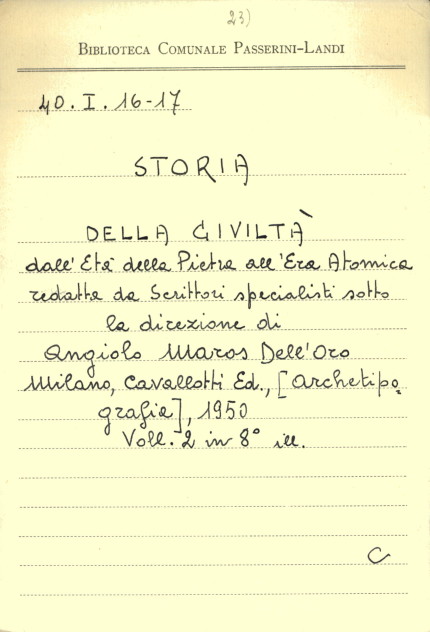 23)
BIBLIOTECA COMUNALE PASSERINI-LANDI
40. I. 16-17
STORIA
DELLA CIVILTÀ
dall'Età della Pietra all'Era Atomica
redatta da Scrittori specialisti sotto
la direzione di
Angiolo Maros Dell'Oro
Milano, Cavallotti Ed., [Archetipo=
grafia], 1950
Voll. 2 in 8° ill.
C